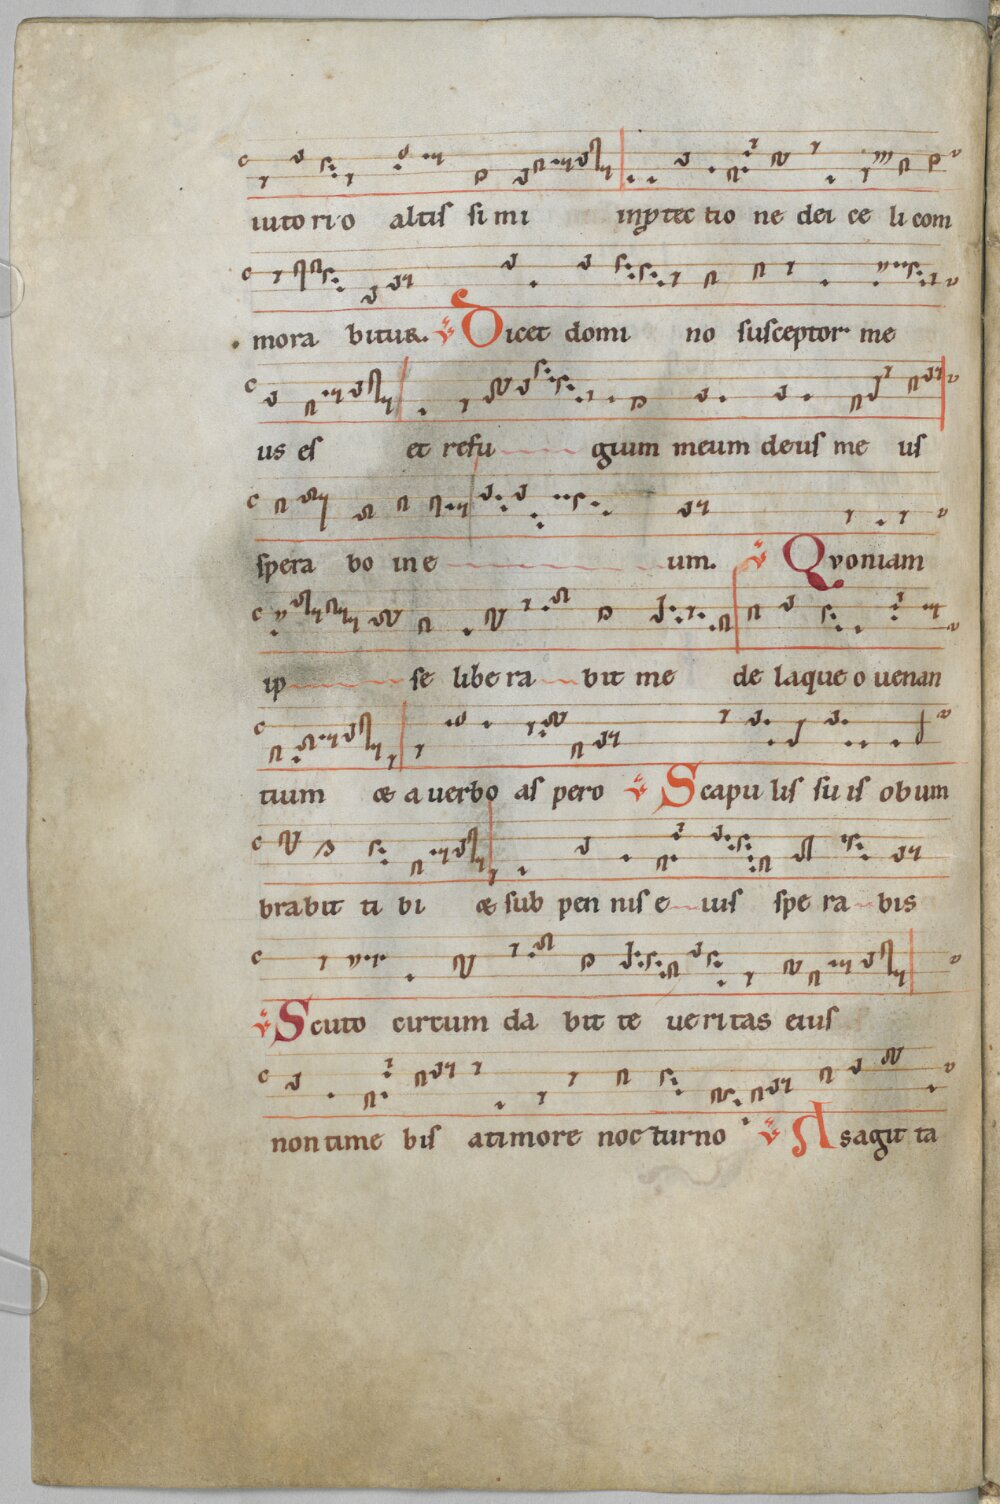 iutorio altis simi inp̱tectio ne dei ce li com
mora bitur. ℣ Dicet domi no susceptor me
us es et refu gium meum deus me us
spera bo in e um. ℣ Quoniam
ip se libera bit me de laqueo uenan
tium & a uerbo as pero ℣ Scapu lis su is obum
brabit ti bi & sub pen nis e ius spe ra bis
℣ Scuto circum da bit te ueritas eius
non time bis a timore noc turno ℣ A sagit ta